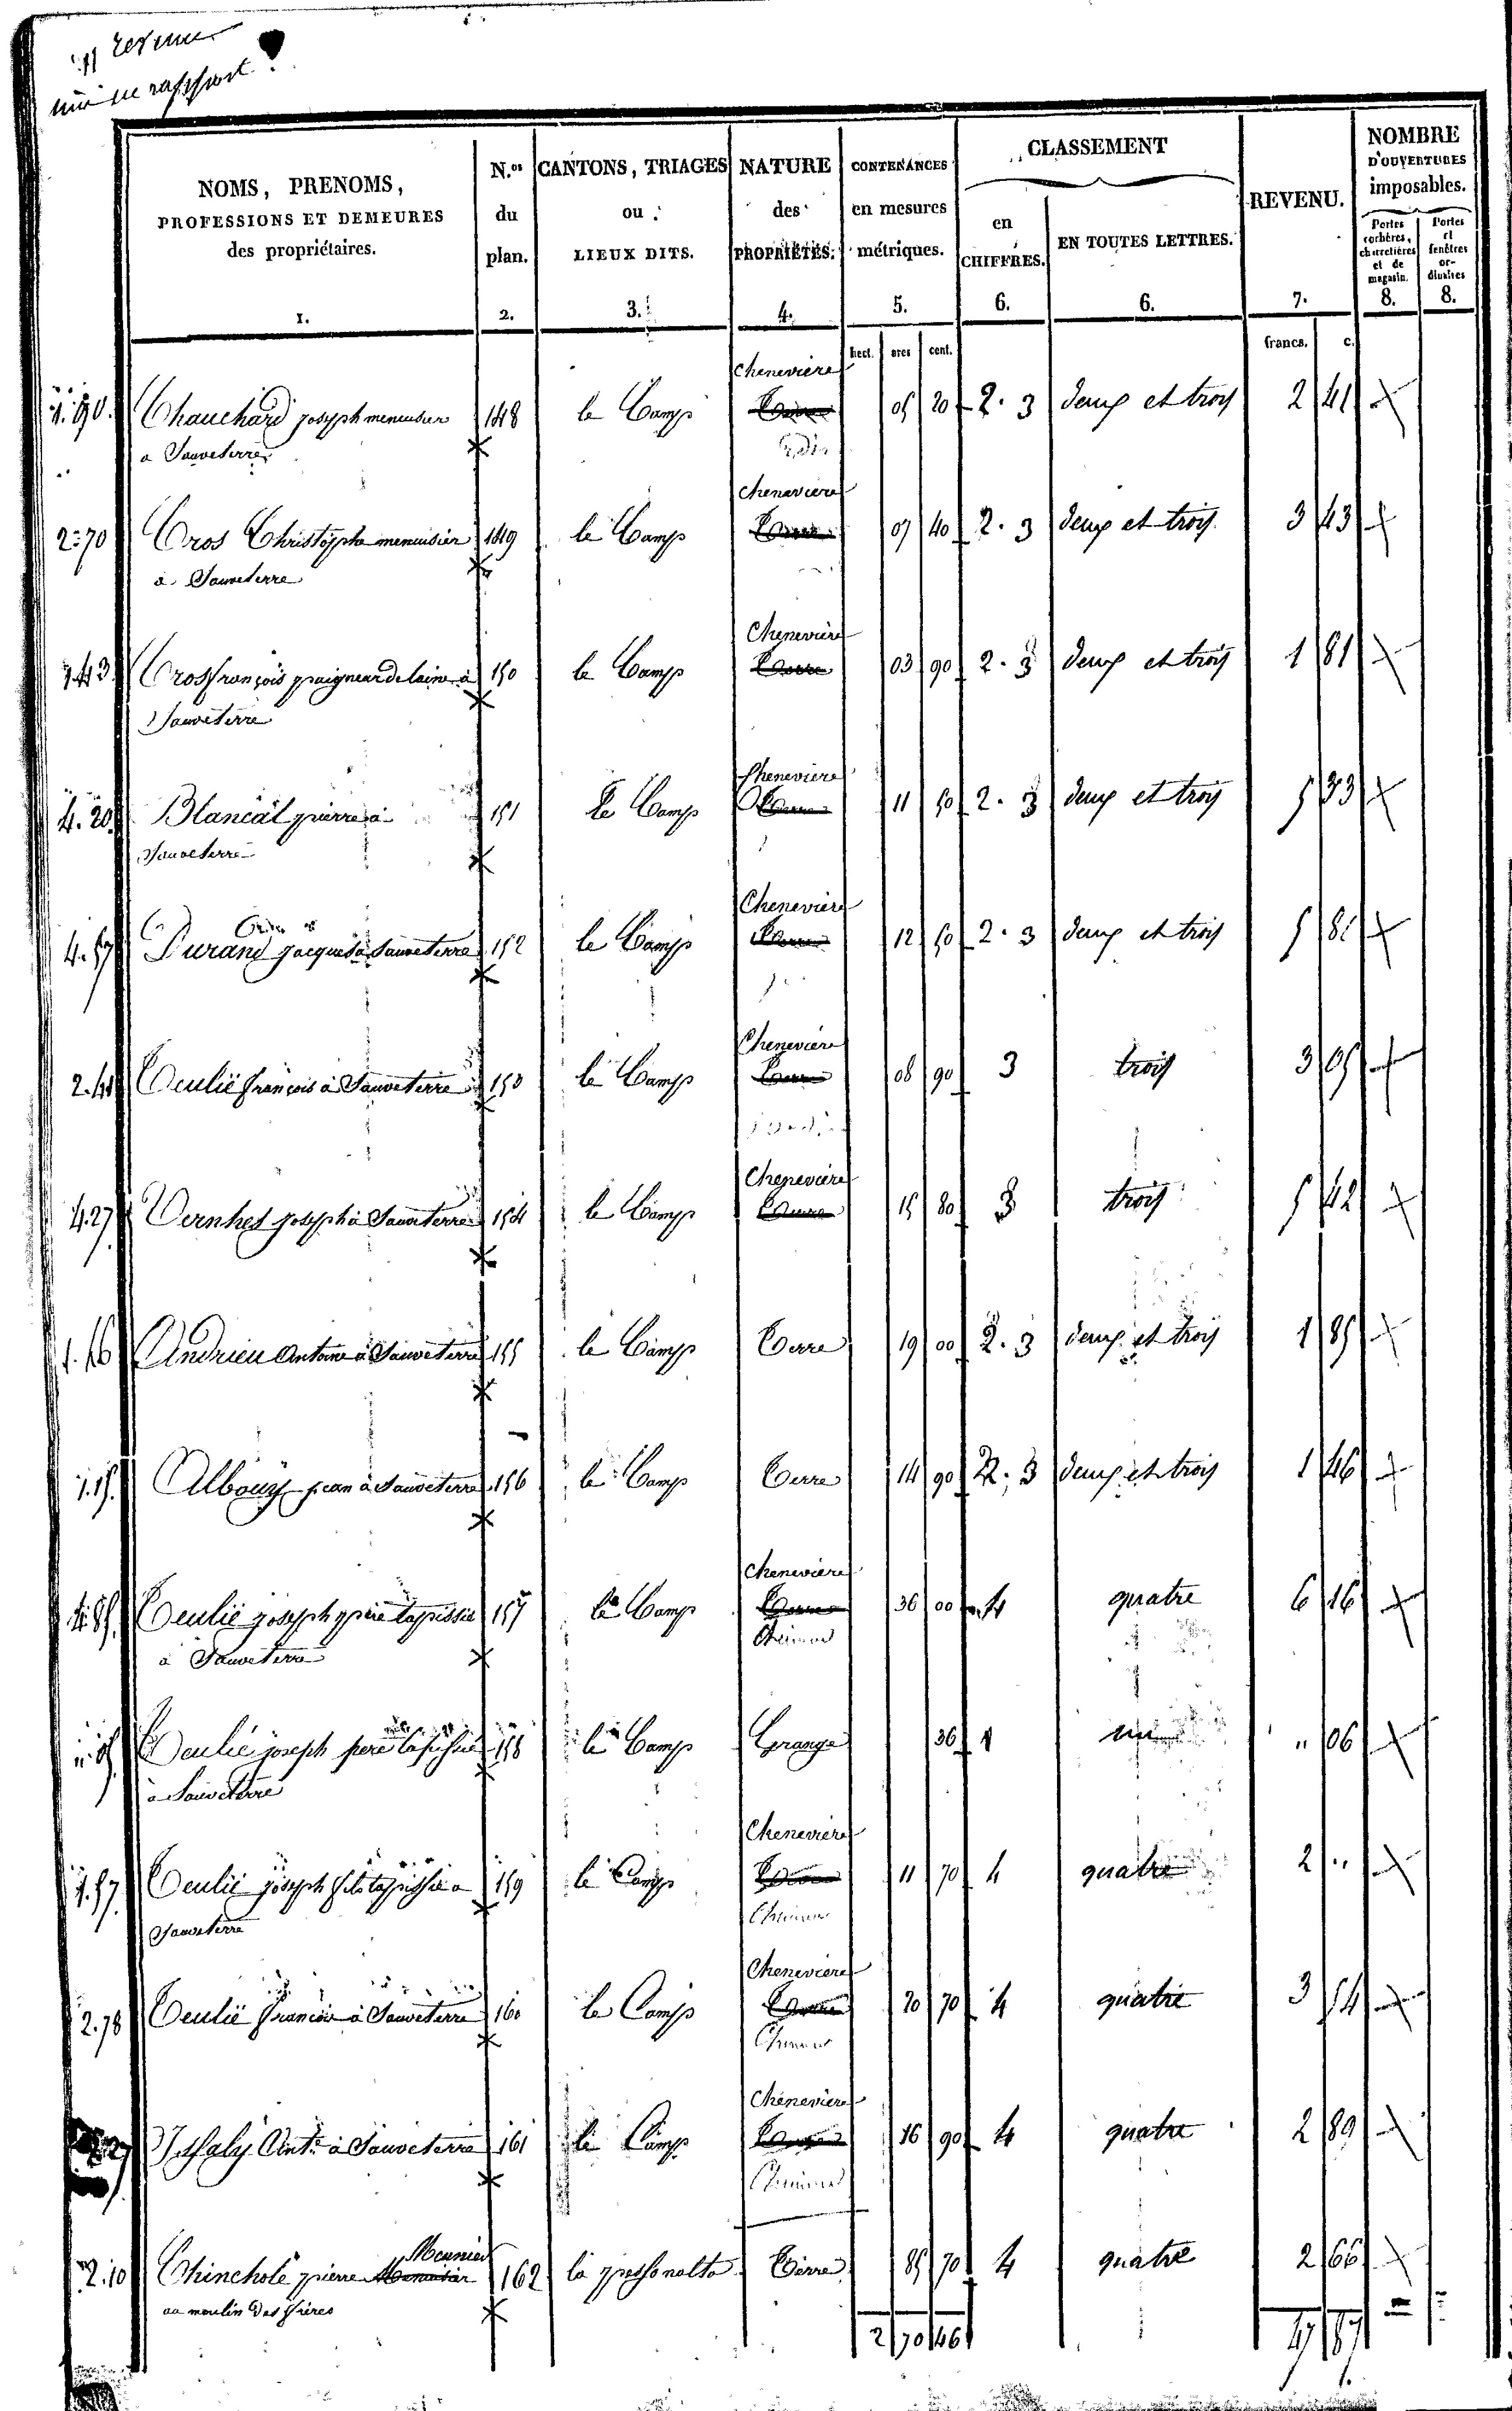 revenu
mis en rapport
NOMS, PRENOMS,
PROFESSIONS ET DEMEURES
des propriétaires.
1.
N.os
du
plan.
2.
CANTONS, TRIAGES
ou
LIEUX DITS.
3.
NATURE
des
PROPRIÉTÉS.
4.
CONTENANCES
en mesures
métriques.
5.
hect. ares cent.
CLASSEMENT
en
CHIFFRES.
6.
EN TOUTES LETTRES.
6.
REVENU.
7.
francs. c.
NOMBRE
D'OUVERTURES
imposables.
Portes
cochères,
charretières
et de
magasin.
8.
Portes
et
fenêtres
or-
dinaires
8.
Chenevière
1.90. Chauchard joseph menuisier 148 le Camp 05 20 2. 3 deux et trois 2 41
a Sauveterre
chenevière
2.70 Cros Christophe menuisier 149 le Camp 07 40 2. 3 deux et trois 3 43
à Sauveterre
Chenevière
1.43 Cros françois peigneur de laine à 150 le Camp 03 90 2. 3 deux et trois 1 81
Sauveterre
Chenevière
4.20 Blancal pierre à 151 le Camp 11 50 2. 3 deux et trois 5 33
Sauveterre
Chenevière
4.57 Durand jacques à Sauveterre 152 le Camp 12 50 2. 3 deux et trois 5 8
Chenevière
2.41 Teulié françois à Sauveterre 153 le Camp 08 90 3 trois 3 05
Chenevière
4.27 Vernhes joseph à Sauveterre 154 le Camp 15 80 3 trois 5 42
1.46 Andrieu Antoine à Sauveterre 155 le Camp Terre 19 00 2. 3 deux et trois 1 85
1.15. Albouy jean à Sauveterre 156 le Camp Terre 14 90 2. 3 deux et trois 1 46
Chenevière
4.85. Teulié joseph père tapissié 157 le Camp 36 00 4 quatre 6 16
à Sauveterre
".05. Teulié joseph père tapissié 158 le Camp Grange 36 1 un " 06
à Sauveterre
Chenevière
1.57. Teulié joseph fils tapissié a 159 le Camp 11 70 4 quatre 2 "
Sauveterre
Chenevière
2.78 Teulié francois à Sauveterre 160 le Camp 20 70 4 quatre 3 54
Chenevière
27 Issaly Ant.e à Sauveterre 161 le Camp 16 90 4 quatre 2 89
Meunier
2.10 Chincholé pierre 162 la pessonalto Terre 85 70 4 quatre 2 66
au moulin des frères
2 70 46 47 87